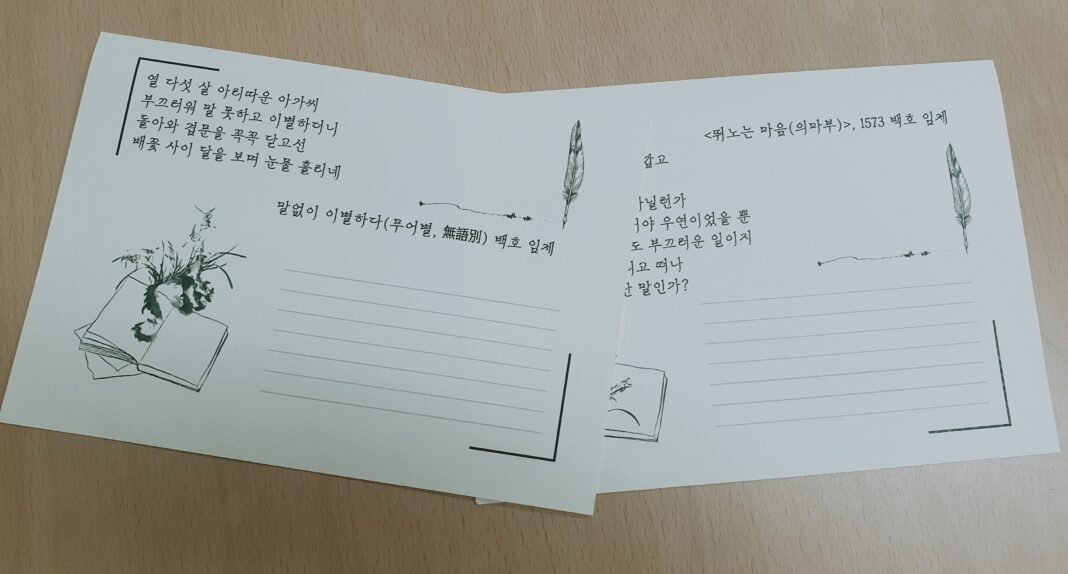 열 다섯 살 아리따운 아가씨
부끄러워 말 못하고 이별하더니
돌아와 겹문을 꼭꼭 닫고선
배꽃 사이 달을 보며 눈물 흘리네
말없이 이별하다(무어별, 無語別) 백호 임제
<뛰노는 마음(의마부)>, 1573 백호 임제
갑고
아닐런가
우연이었을 뿐
도 부끄러운 일이지
고 떠나
말인가?